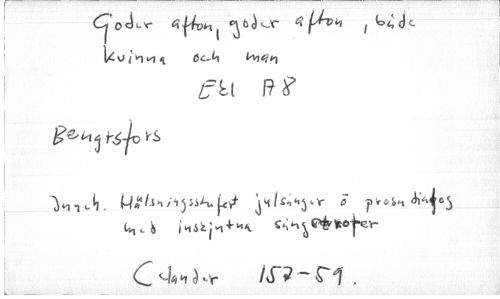 Goder afton, goder afton, både
kvinna och man
EEI A8
Bengtsfors
Inneh. Hälsningsstrofer julsånger o prosadialog
med inskjutna sångstrofer
Celander 157-59.